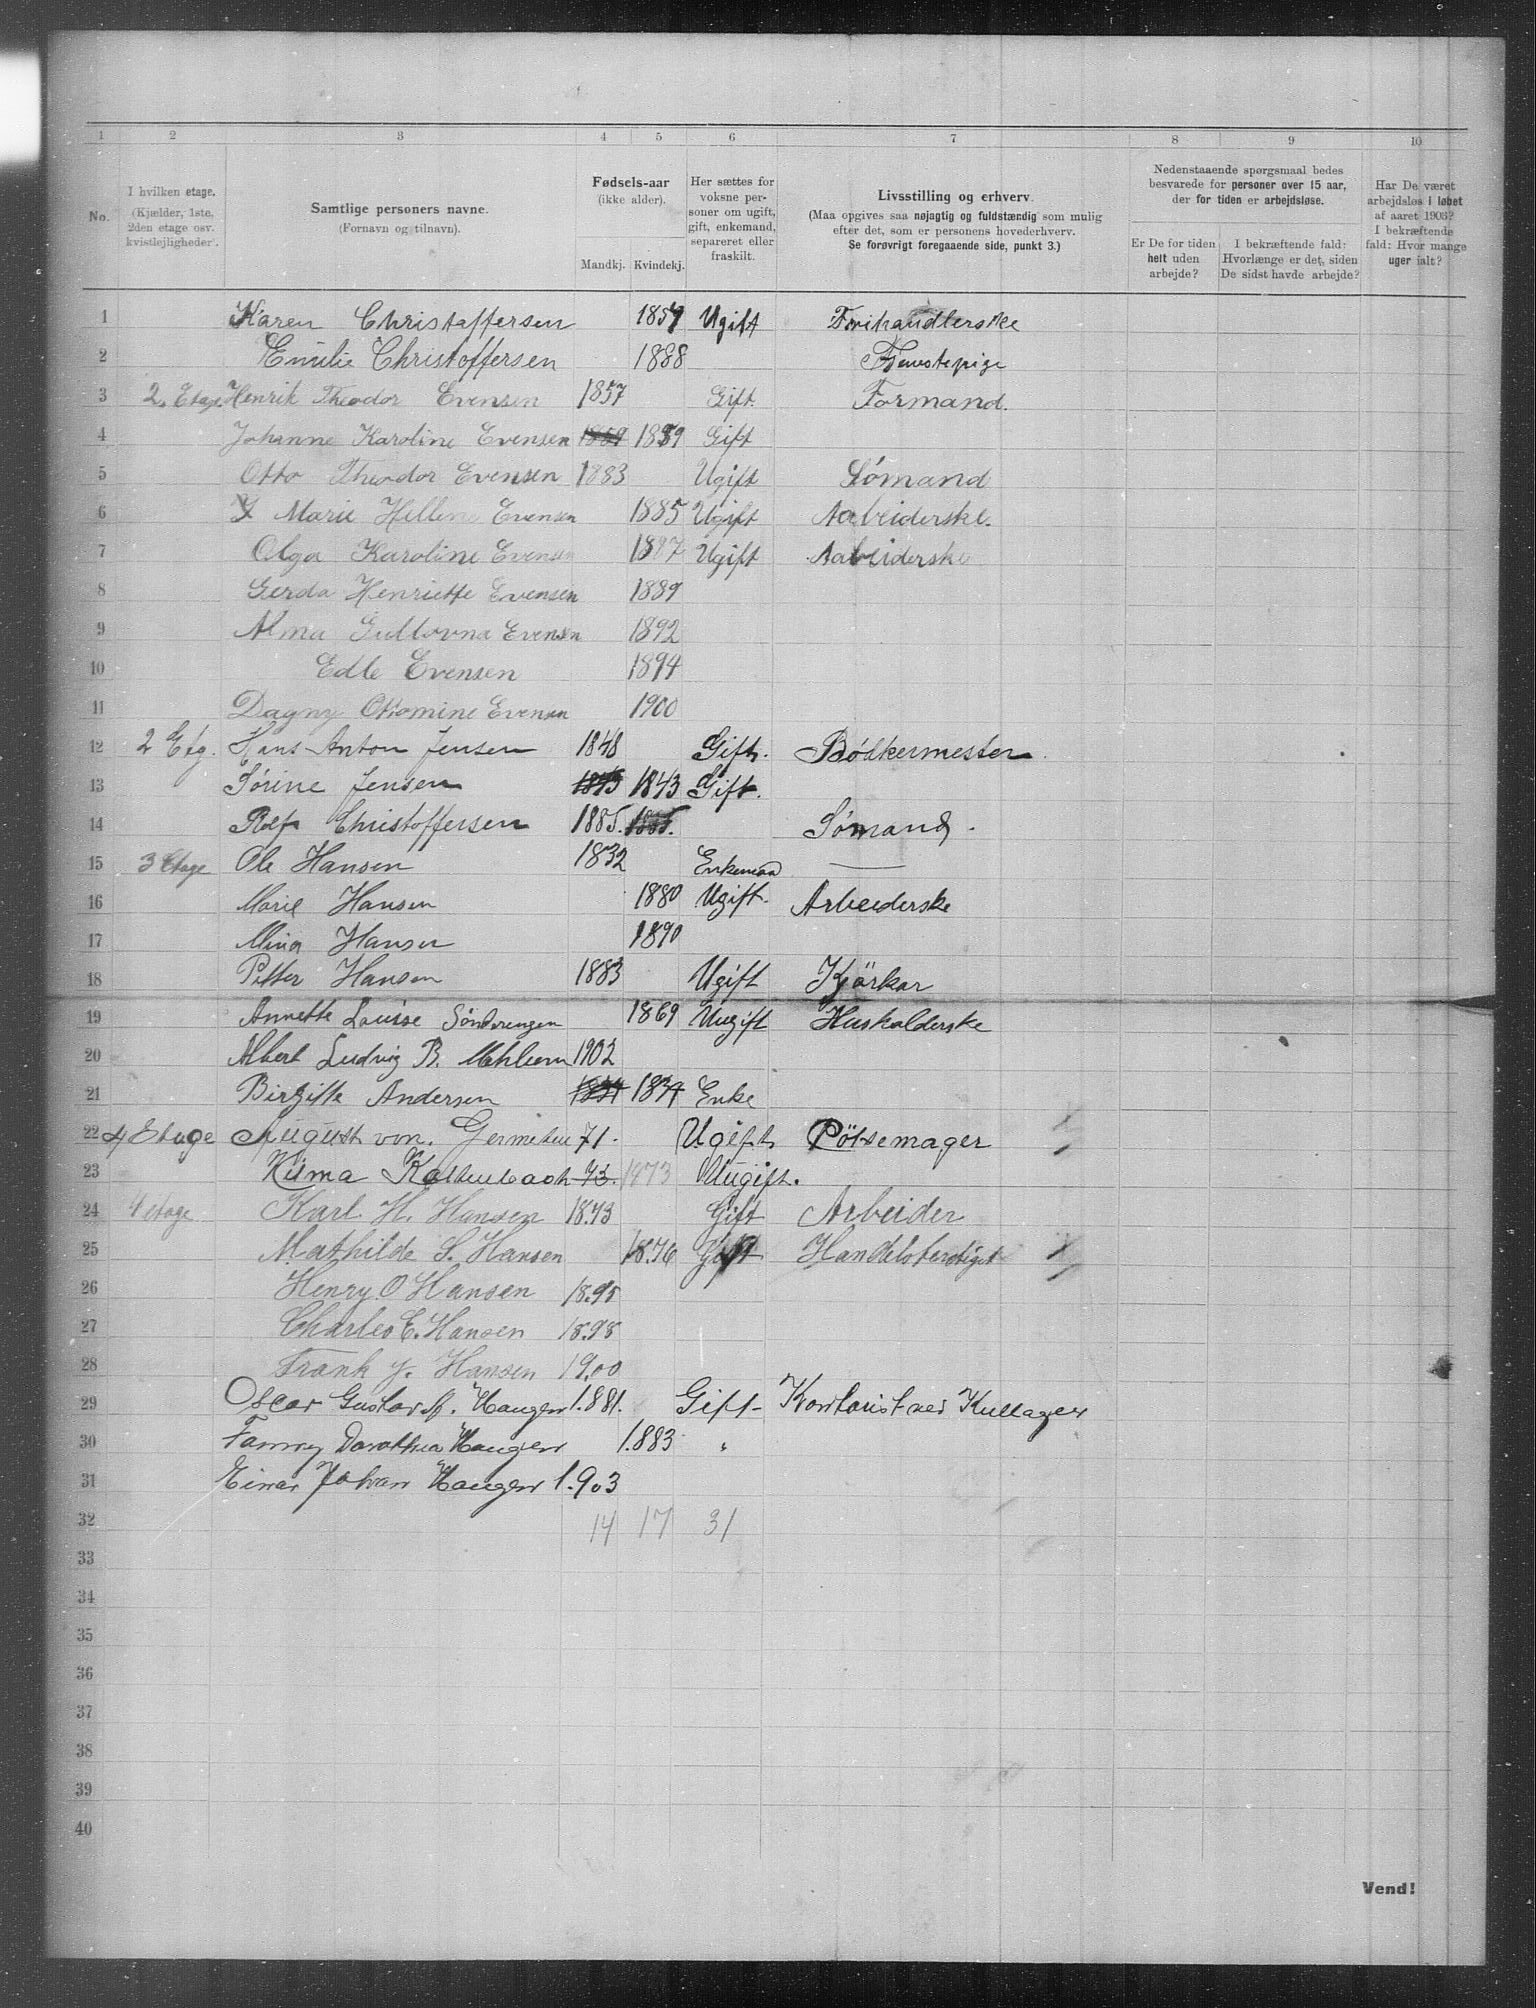 1 2 3 4 5 6 7 8 9 10
No. I hvilken etage. (Kjælder, 1ste, 2den etage osv. kvistlejligheder). Samtlige personers navne. (Fornavn og tilnavn). Fødsels-aar (ikke alder). Mandkj. Kvindekj. Her sættes for voksne personer om ugift, gift, enkemand, separeret eller fraskilt. Livsstilling og erhverv. (Maa opgives saa nøjagtig og fuldstændig som mulig efter det, som er personens hovederhverv. Se forøvrigt foregaaende side, punkt 3.) Nedenstaaende spørgsmaal bedes besvarede for personer over 15 aar, der for tiden er arbejdsløse. Er De for tiden helt uden arbejde? I bekræftende fald: Hvorlænge er det, siden De sidst havde arbejde? Har De været arbejdsløs i løbet af aaret 1903? I bekræftende fald: Hvor mange uger ialt?
1 Karen Christaffersen 1857 Ugift
2 Emilie Christoffersen 1888
3 2. Etage Henrik Theodor Evensen 1857 Gift. Formand.
4 Johanne Karoline Evensen 1859 1859 Gift
5 Otto Theodor Evensen 1883 Ugift Sömand
6 Marie Helline Evensen 1885 Ugift Aabeiderske.
7 Olga Karoline Evensen 1887 Ugift Aabeiderske
8 Gerda Henriette Evensen 1889
9 Alma Evensen 1892
10 Edle Evensen 1894
11 Dagny Ottomine Evensen 1900
12 2 Etg. Hans Anton Jensen 1848 Gift. Bödkermester
13 Sörine Jensen 1843 1843 Gift.
14 Rolf Christoffersen 1885. 1885. Sömand.
15 3 Etage Ole Hansen 1832 Enkemand
16 Marie Hansen 1880 Ugift. Arbeiderske
17 Mina Hansen 1890
18 Petter Hansen 1883 Ugift Kjörkar
19 Annette Louise Sönderengen 1869 Uugift Husholderske
20 Albert Ludvig B. Mehlum 1902
21 Birgitte Andersen 1834 1834 Enke
22 4 Etage August von. 71. Ugift Pölsemager
23 Kaltenbach 73. 1873 Uugift.
24 4 etage Karl H. Hansen 18.73 Gift Arbeider
25 Mathilde S. Hansen 18.76 Gift
26 Henry O Hansen 18.95
27 Charles E. Hansen 18.98
28 Frank J. Hansen 19.00
29 Oscar Gustav A. Haugen 1.881. Gift- Kontorist ved Kullager
30 Fanny Dorothea Haugen 1.883 "
31 Einar Johan Haugen 1.903
32 14 17 31
33
34
35
36
37
38
39
40
Vend!